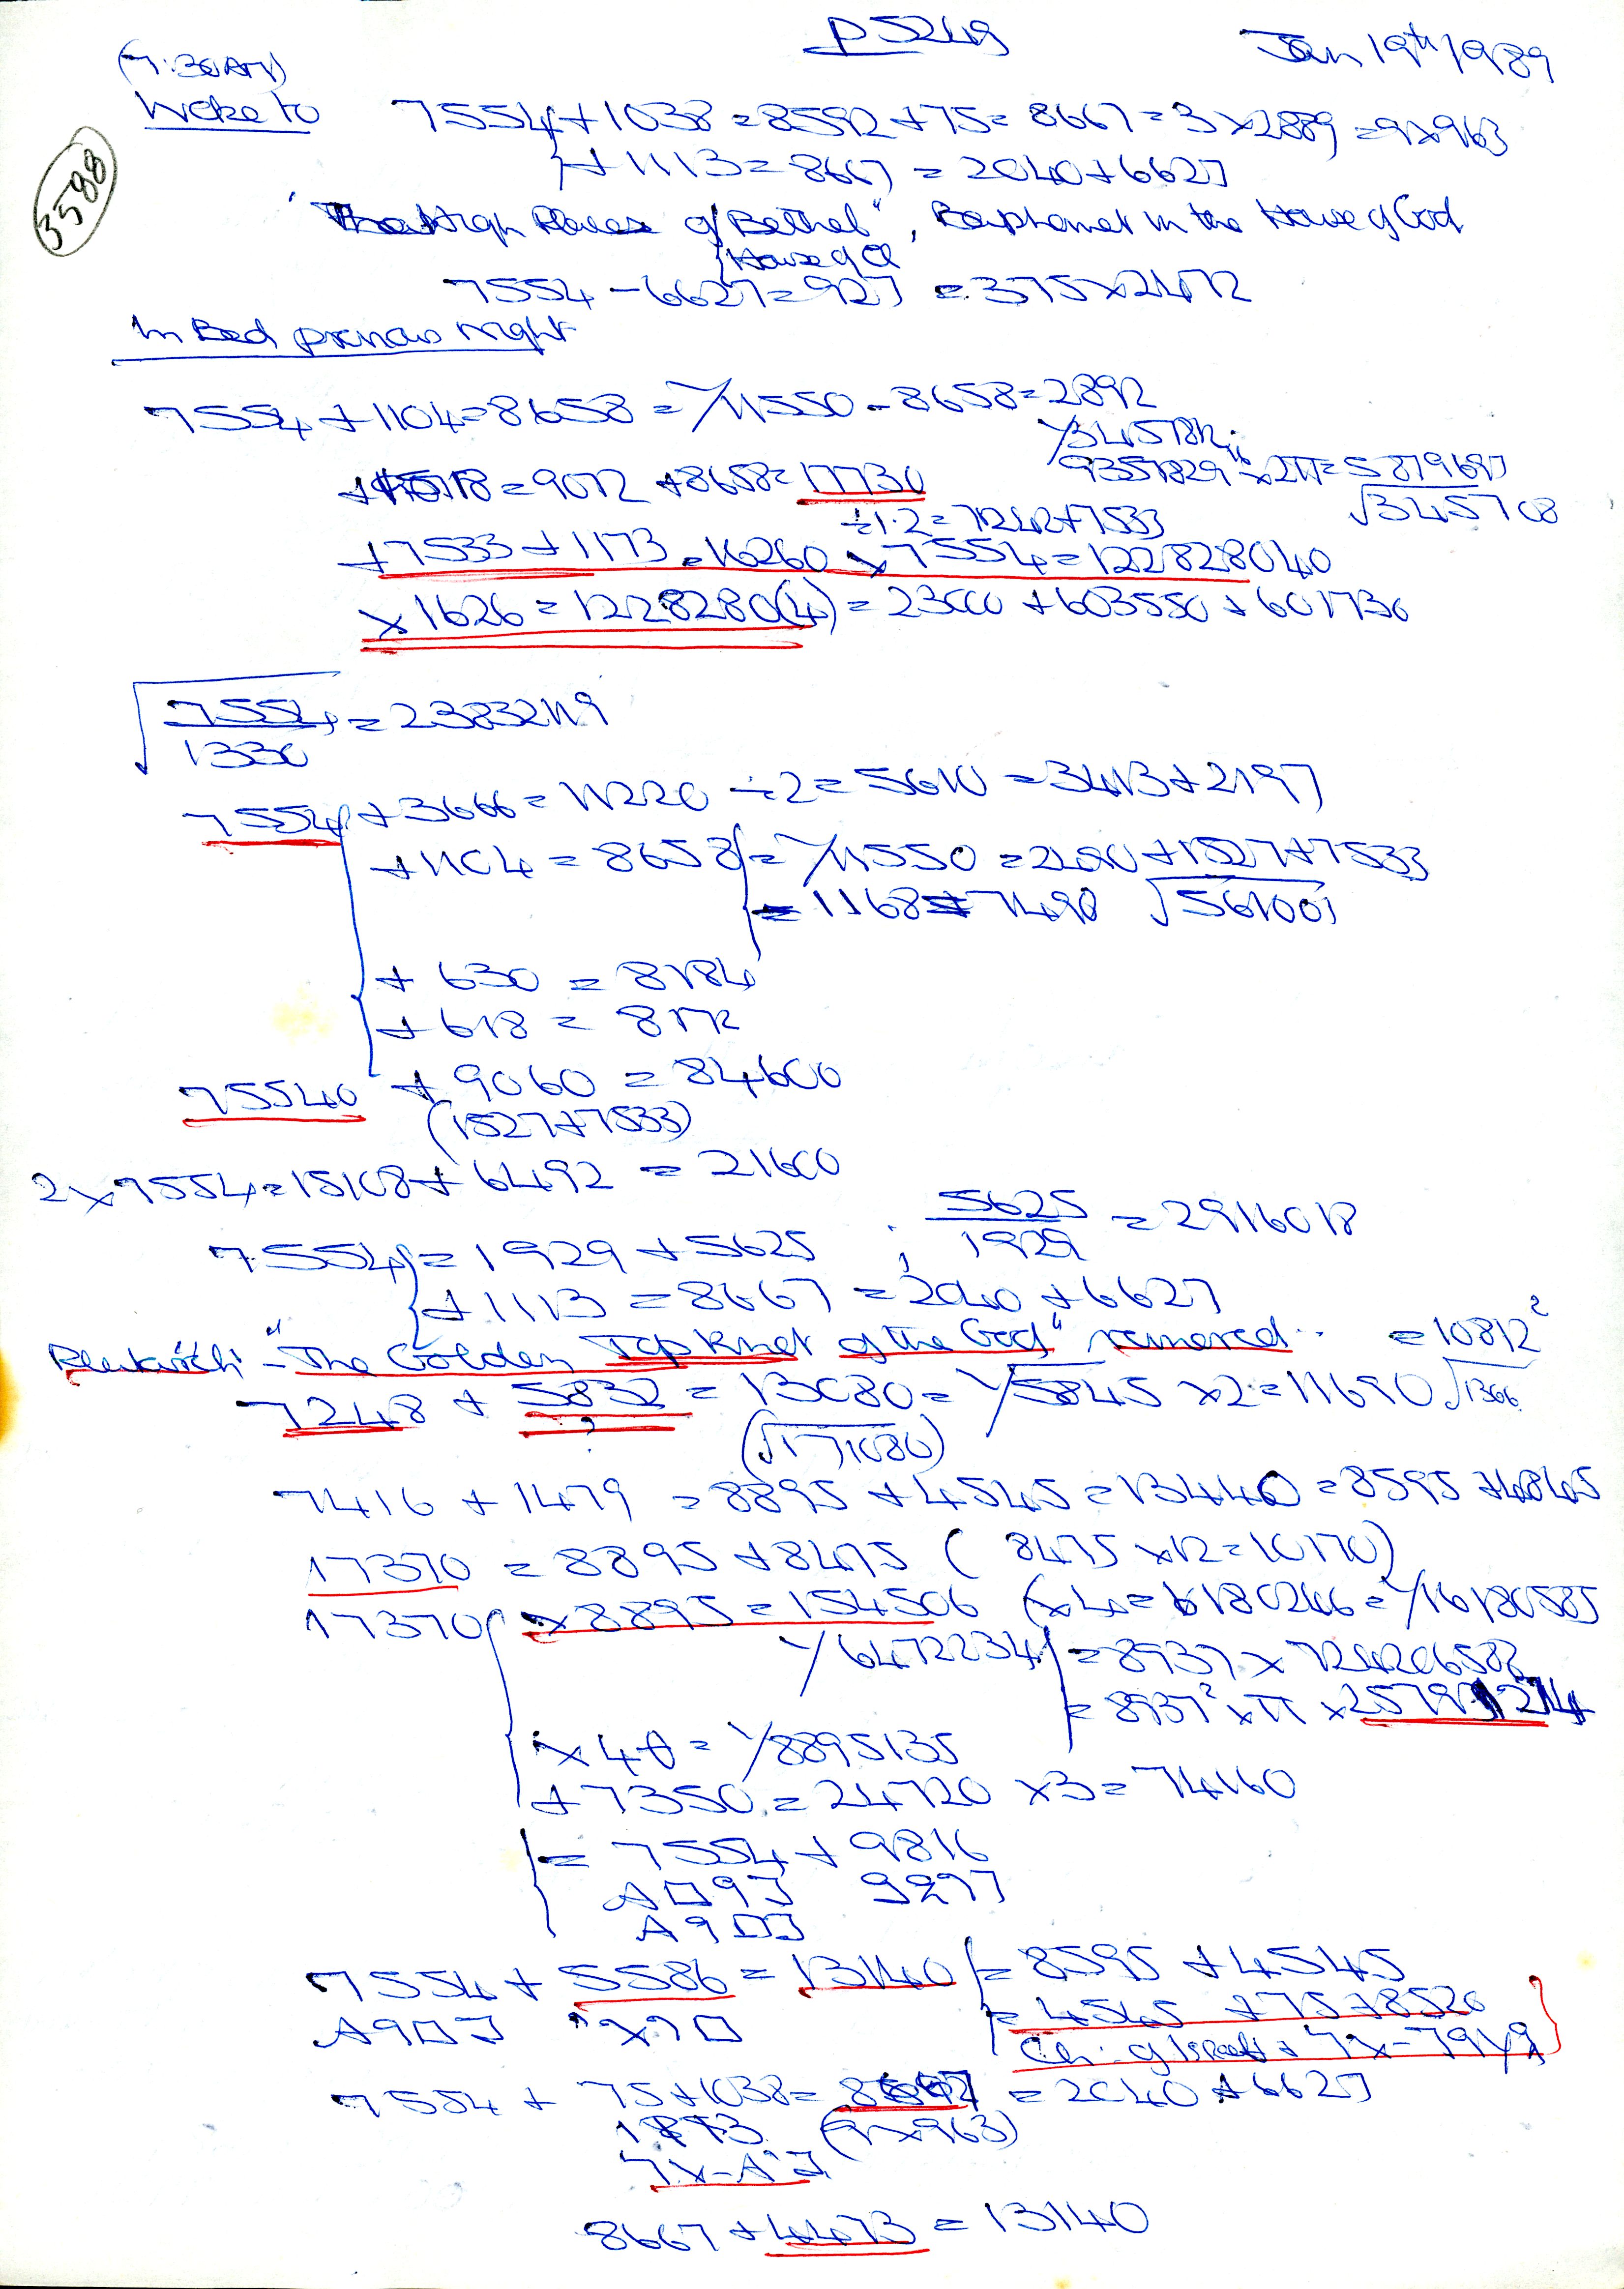 P5249
Jan 19th 1989
(7.30AM)
Woke to 7554 + 1038 = 8592 + 75 = 8667 = 3 x 2889 = 9 x 963
3588
+ 1113 = 8667 = 2040 + 6627
"The High Places of Bethel", Baphomet in the House of God
House of
7554 - 6627 = 927 = 375 x 2472
In Bed previous night
7554 + 1104 = 8658 = 1/11550 - 8658 = 2892
+ 1518 = 9072 + 8658 = 17730
÷ 1.2 = 7242 + 7533
+ 7533 + 1173 = 16260 x 7554 = 122828040
x 1626 = 1228280(4) = 23000 + 603550 + 601730
√7554/1330 = 2383249
7554 + 3666 = 11220 ÷ 2 = 5610 = 3413 + 2197
+ 1104 = 8658 = 1/11550 = 2490 + 1527 + 7533
= 1168 + 7490 √561001
+ 630 = 8184
+ 618 = 8172
75540 + 9060 = 84600
(1527 + 7533)
2 x 7554 = 15108 + 6492 = 21600
7554 = 1929 + 5625 ; 5625/1929 = 2916018
+ 1113 = 8667 = 2040 + 6627
Plutarch: - "The Golden Top Knot of the God" removed.. = 10812²
7248 + 5832 = 13080 = 1/√5845 x 2 = 11690 √1366
(√171080)
7416 + 1479 = 8895 + 4545 = 13440 = 8595 + 4845
17370 = 8895 + 8475 ( 8475 x 12 = 10170)
17370 x 8895 = 154506 (x 4 = 6180246 = 1/16180585
1/6472234 = 8937 x 724206582
= 8937² x π x
x 40 = 1/8895135
+ 7350 = 24720 x 3 = 74160
= 7554 + 9816
7554 + 5586 = 13140 = 8595 + 4545
= 4545 + 75 + 8520
Ch. of Israel +
7554 + 75 + 1038 = 8667 = 2040 + 6627
(9 x 963)
8667 + 4473 = 13140